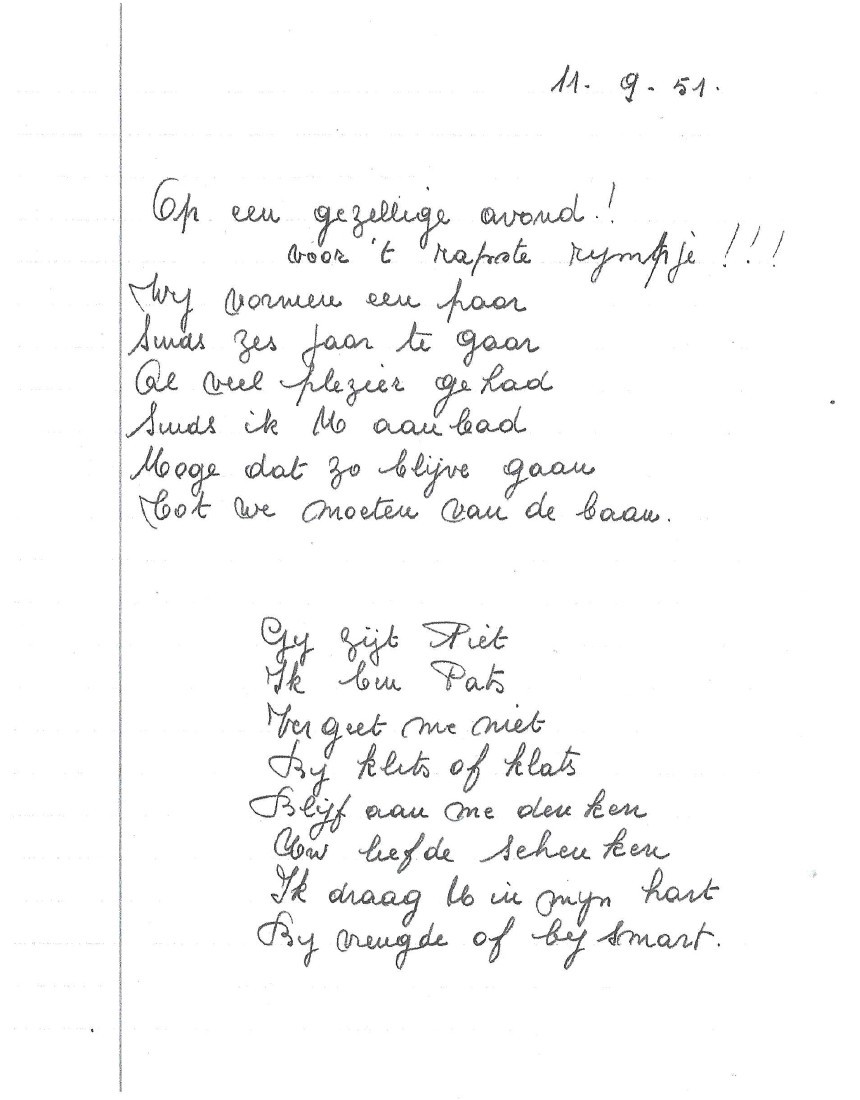 11. 9. 51.
Op een gezellige avond!
voor 't rapste rympje!!!
Wy vormen een paar
Sinds zes jaar te gaar
Al veel plezier gehad
Sinds ik U aanbad
Moge dat zo blijve gaan
Tot we moeten van de baan.
Gy zijt Piet
Ik ben Pats
Vergeet me niet
By klets of klats
Blijf aan me denken
Uw liefde schenken
Ik draag U in myn hart
By vreugde of by smart.